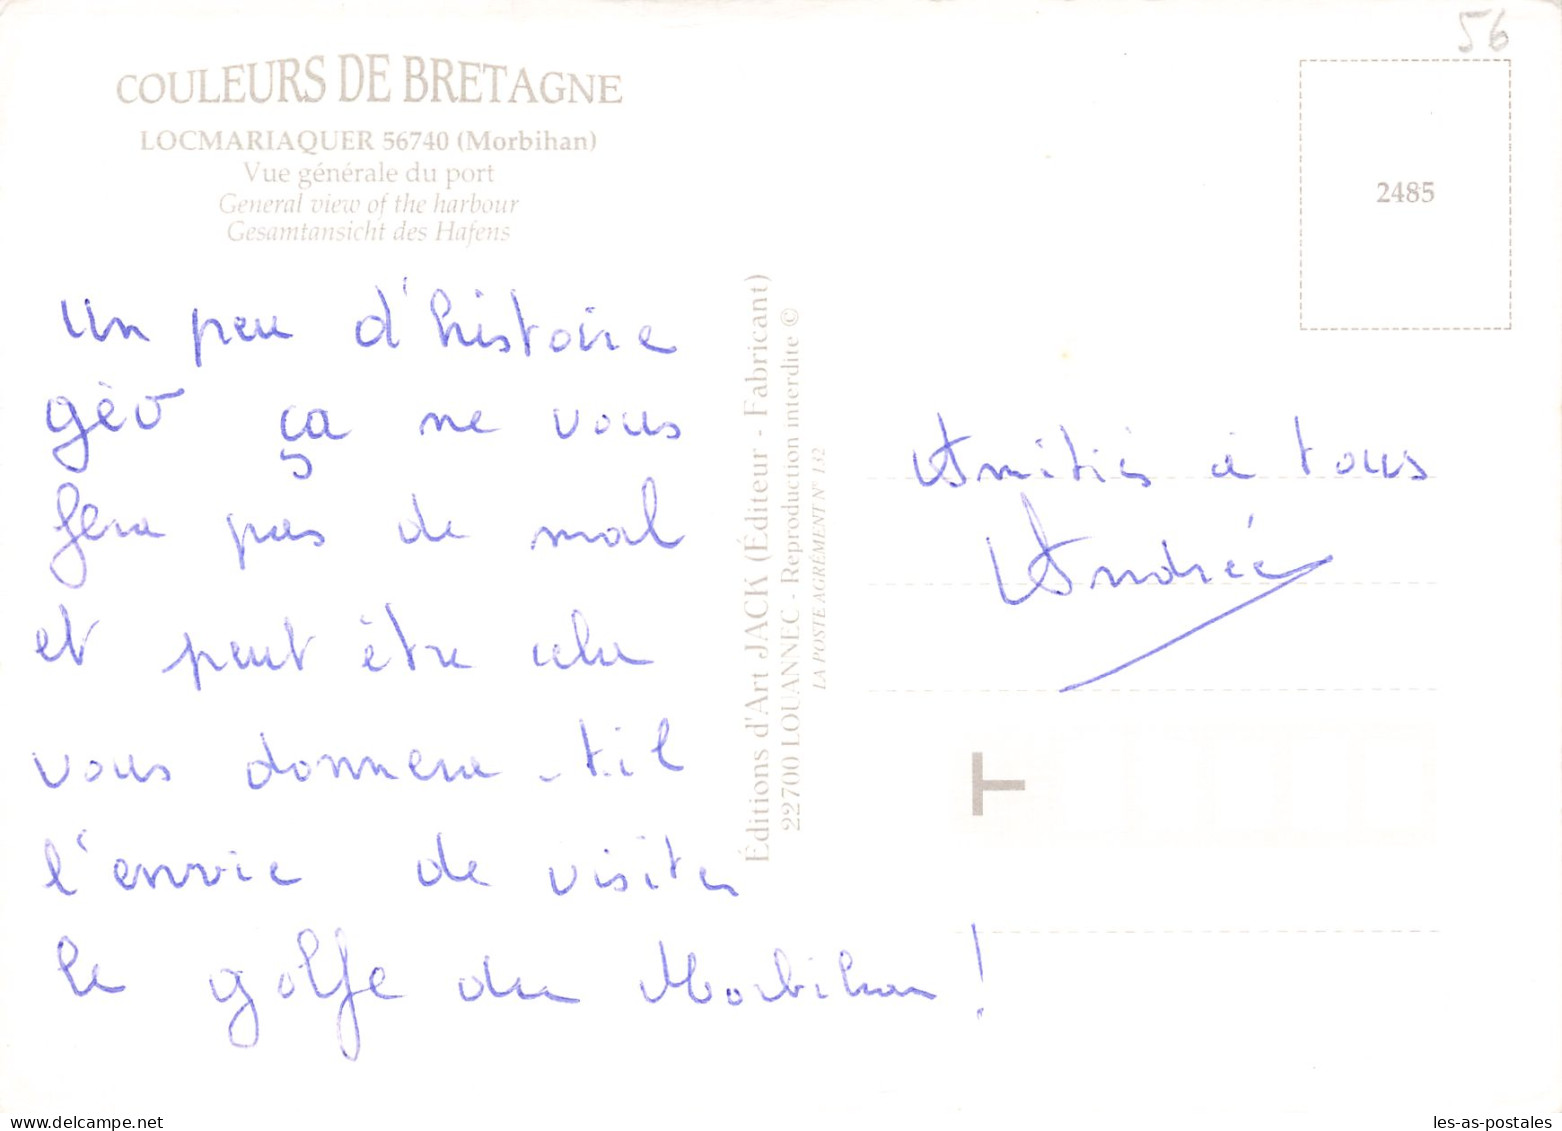 56
COULEURS DE BRETAGNE
LOCMARIAQUER 56740 (Morbihan)
Vue générale du port
General view of the harbour
Gesamtansicht des Hafens
2485
Un peu d'histoire
géo ça ne vous
fera pas de mal
et peut être cela
vous donnera-t-il
l'envie de visiter
le golfe du Morbihan !
Éditions d'Art JACK (Éditeur - Fabricant)
22700 LOUANNEC - Reproduction interdite ©
LA POSTE AGRÉMENT N° 132
Amitiés à tous
Andrée
T
les-as-postales